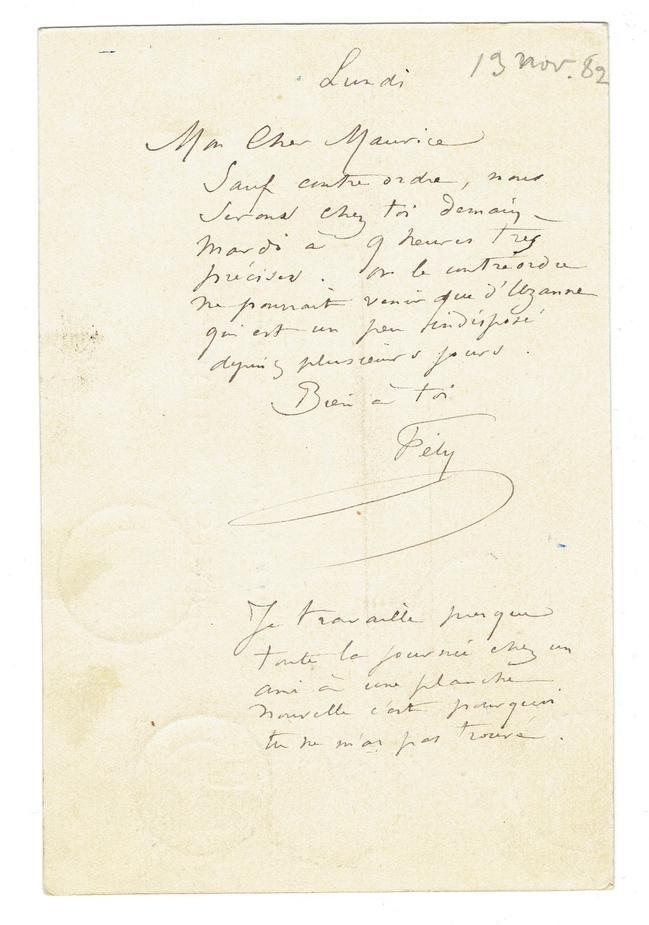 Lundi
13 nov. 82
Mon Cher Maurice
Sauf contre ordre, nous
serons chez toi demain
mardi à 9 heures très
précises. Or le contreordre
ne pourrait venir que d'Uzanne
qui est un peu indisposé
depuis plusieurs jours.
Bien à toi
Fély
Je travaille presque
toute la journée chez un
ami à une planche
nouvelle c'est pourquoi
tu ne m'as pas trouvé.